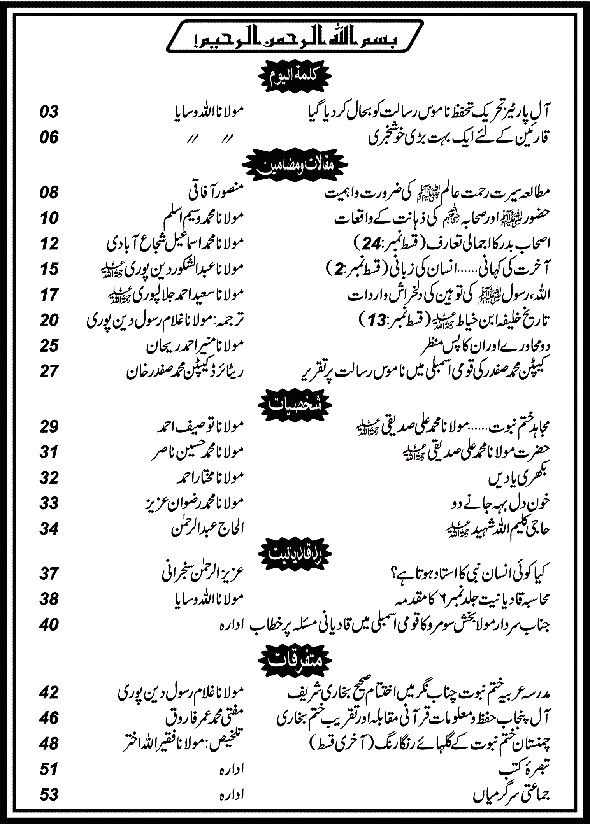 بسم اللہ الرحمن الرحیم!
کلمۃ الیوم
آل پارٹیز تحریک تحفظ ناموس رسالت کو بحال کر دیا گیا مولانا اللہ وسایا 03
قارئین کے لئے ایک بہت بڑی خوشخبری // // 06
مقالات ومضامین
مطالعہ سیرت رحمت عالم ﷺ کی ضرورت واہمیت منصور آفاقی 08
حضور ﷺ اور صحابہ کی ذہانت کے واقعات مولانا محمد وسیم اسلم 10
اصحاب بدر کا اجمالی تعارف (قسط نمبر: 24) مولانا محمد اسماعیل شجاع آبادی 12
آخرت کی کہانی ...... انسان کی زبانی (قسط نمبر: 2) مولانا عبدالشکور دین پوری 15
اللہ، رسول ﷺ کی توہین کی دلخراش واردات مولانا سعید احمد جلالپوری 17
تاریخ خلیفہ ابن خیاط (قسط نمبر: 13) ترجمہ: مولانا غلام رسول دین پوری 20
دو محاورے اور ان کا پس منظر مولانا منیر احمد ریحان 25
کیپٹن محمد صفدر کی قومی اسمبلی میں ناموس رسالت پر تقریر ریٹائرڈ کیپٹن محمد صفدر خان 27
شخصیات
مجاہد ختم نبوت ...... مولانا محمد علی صدیقی مولانا توصیف احمد 29
حضرت مولانا محمد علی صدیقی مولانا محمد حسین ناصر 31
بکھری یادیں مولانا مختار احمد 32
خون دل بہہ جانے دو مولانا محمد رضوان عزیز 33
حاجی کلیم اللہ شہید الحاج عبدالرحمٰن 34
ردقادیانیت
کیا کوئی انسان نبی کا استاد ہوتا ہے؟ عزیز الرحمٰن سنجرانی 37
محاسبہ قادیانیت جلد نمبر ۶ کا مقدمہ مولانا اللہ وسایا 38
جناب سردار مولا بخش سومرو کا قومی اسمبلی میں قادیانی مسئلہ پر خطاب ادارہ 40
متفرقات
مدرسہ عربیہ ختم نبوت چناب نگر میں اختتام صحیح بخاری شریف مولانا غلام رسول دین پوری 42
آل پنجاب حفظ ومعلومات قرآنی مقابلہ اور تقریب ختم بخاری مفتی محمد عمر فاروق 46
چمنستان ختم نبوت کے گلہائے رنگارنگ (آخری قسط) تلخیص: مولانا فقیر اللہ اختر 48
تبصرۂ کتب ادارہ 51
جماعتی سرگرمیاں ادارہ 53